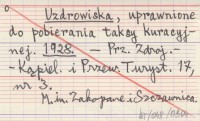 Uzdrowiska, uprawnione
do pobierania taksy kuracyj-
nej. 1928. – Prz. Zdroj.-
-Kąpiel. i Przew. Turyst. 17,
nr 3.
M. in. Zakopane i Szczawnica.